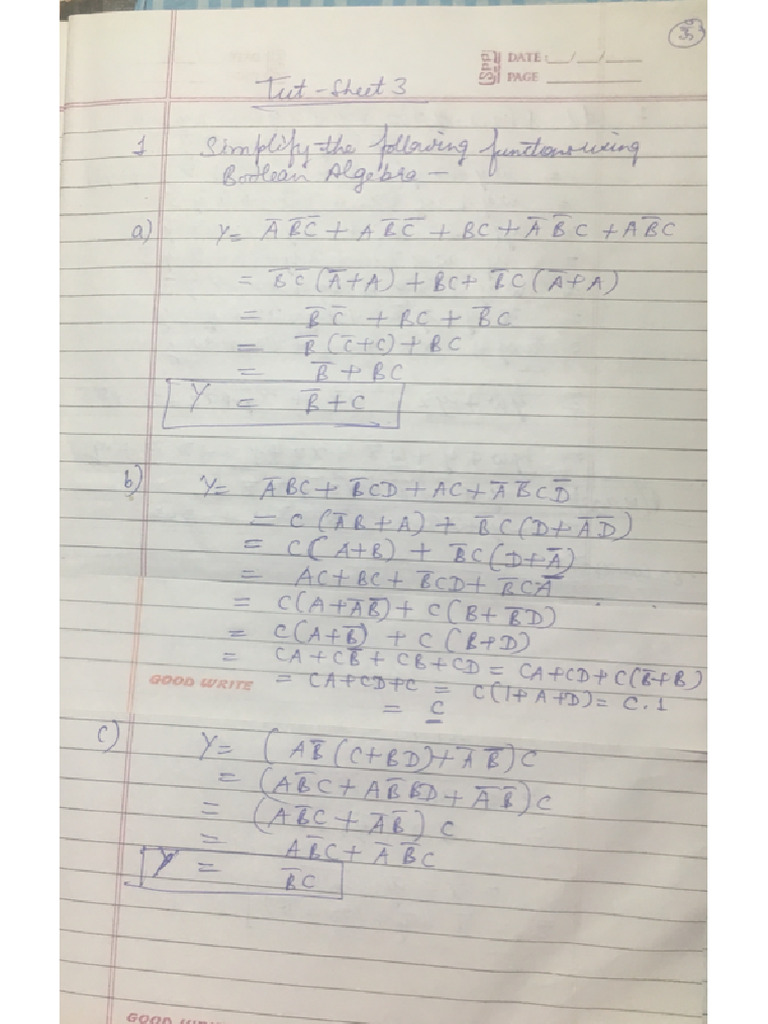 ॐ
SPP DATE: __/__/__
PAGE
Tut-Sheet 3
1 Simplify the following functions using
Boolean Algebra –
a) Y = A̅ B̅ C̅ + A B̅ C̅ + BC + A̅ B̅ C + A B̅ C
= B̅ C̅ (A̅ + A) + BC + B̅ C (A̅ + A)
= B̅ C̅ + BC + B̅ C
= B̅ (C̅ + C) + BC
= B̅ + BC
Y = B̅ + C
b) Y = A̅ BC + B̅ CD + AC + A̅ B̅ C D̅
= C (A̅ B + A) + B̅ C (D + A̅ D̅)
= C (A + B) + B̅ C (D + A̅)
= AC + BC + B̅ CD + B̅ C A̅
= C (A + A̅ B̅) + C (B + B̅ D)
= C (A + B̅) + C (B + D)
= CA + C B̅ + CB + CD = CA + CD + C (B̅ + B)
GOOD WRITE = CA + CD + C = C (1 + A + D) = C . 1
= C
c) Y = (A B̅ (C + BD) + A̅ B̅) C
= (A B̅ C + A B̅ BD + A̅ B̅) C
= (A B̅ C + A̅ B̅) C
= A B̅ C + A̅ B̅ C
Y = B̅ C
GOOD WRI